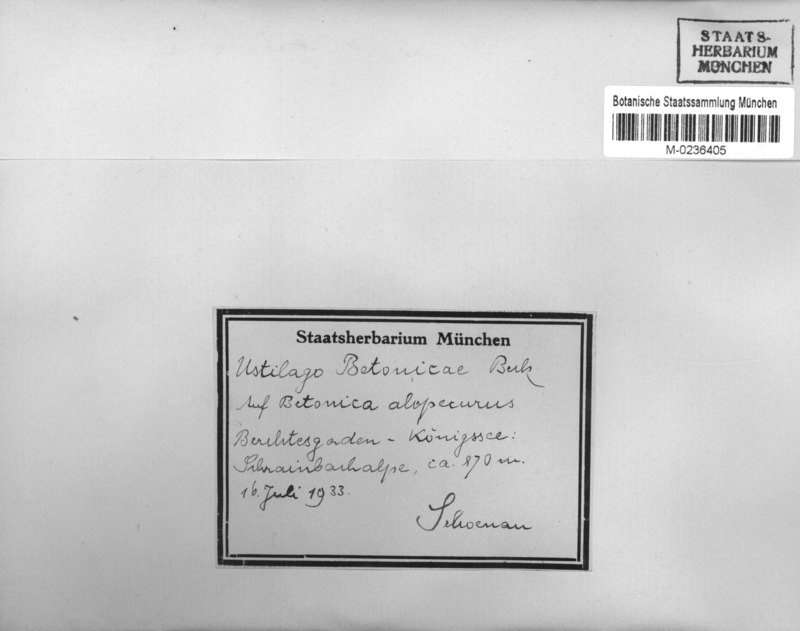 STAATS-
HERBARIUM
MÜNCHEN
Botanische Staatssammlung München
M-0236405
Staatsherbarium München
Ustilago Betonicae Beck
Auf Betonica alopecurus
Berchtesgaden - Königssee:
Schrainbachalpe, ca. 870 m.
16. Juli 1933.
Schoenau